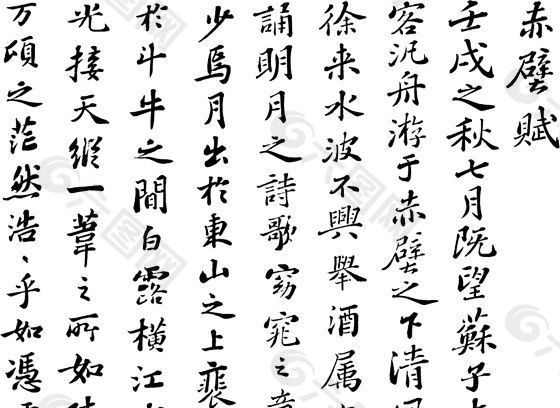 赤壁賦
壬戌之秋七月既望蘇子
客汎舟游于赤壁之下清
徐来水波不興舉酒属
誦明月之詩歌窈窕之章
少焉月出於東山之上裴
於斗牛之間白露橫江
光接天縱一葦之所如
万頃之茫然浩〻乎如憑